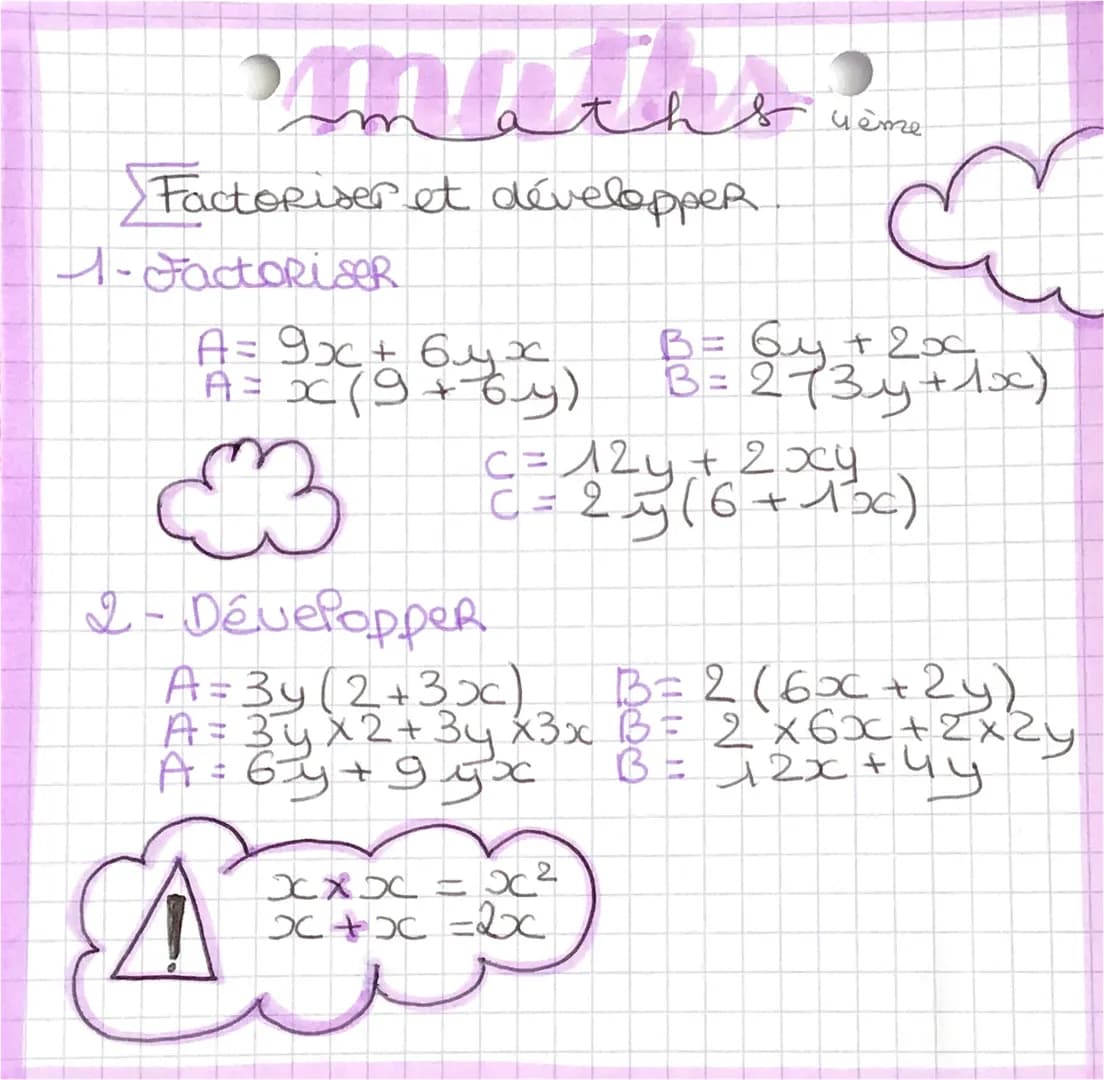 maths
maths 4ème
Factoriser et développer.
1- Factoriser
A = 9x + 6yx
A = x(9 + 6y)
B = 6y + 2x
B = 2(3y + 1x)
C = 12y + 2xy
C = 2y(6 + 1x)
2 - Développer
A = 3y(2+3x)
A = 3y×2 + 3y×3x
A = 6y + 9yx
B = 2(6x + 2y)
B = 2×6x + 2×2y
B = 12x + 4y
!
x × x = x²
x + x = 2x